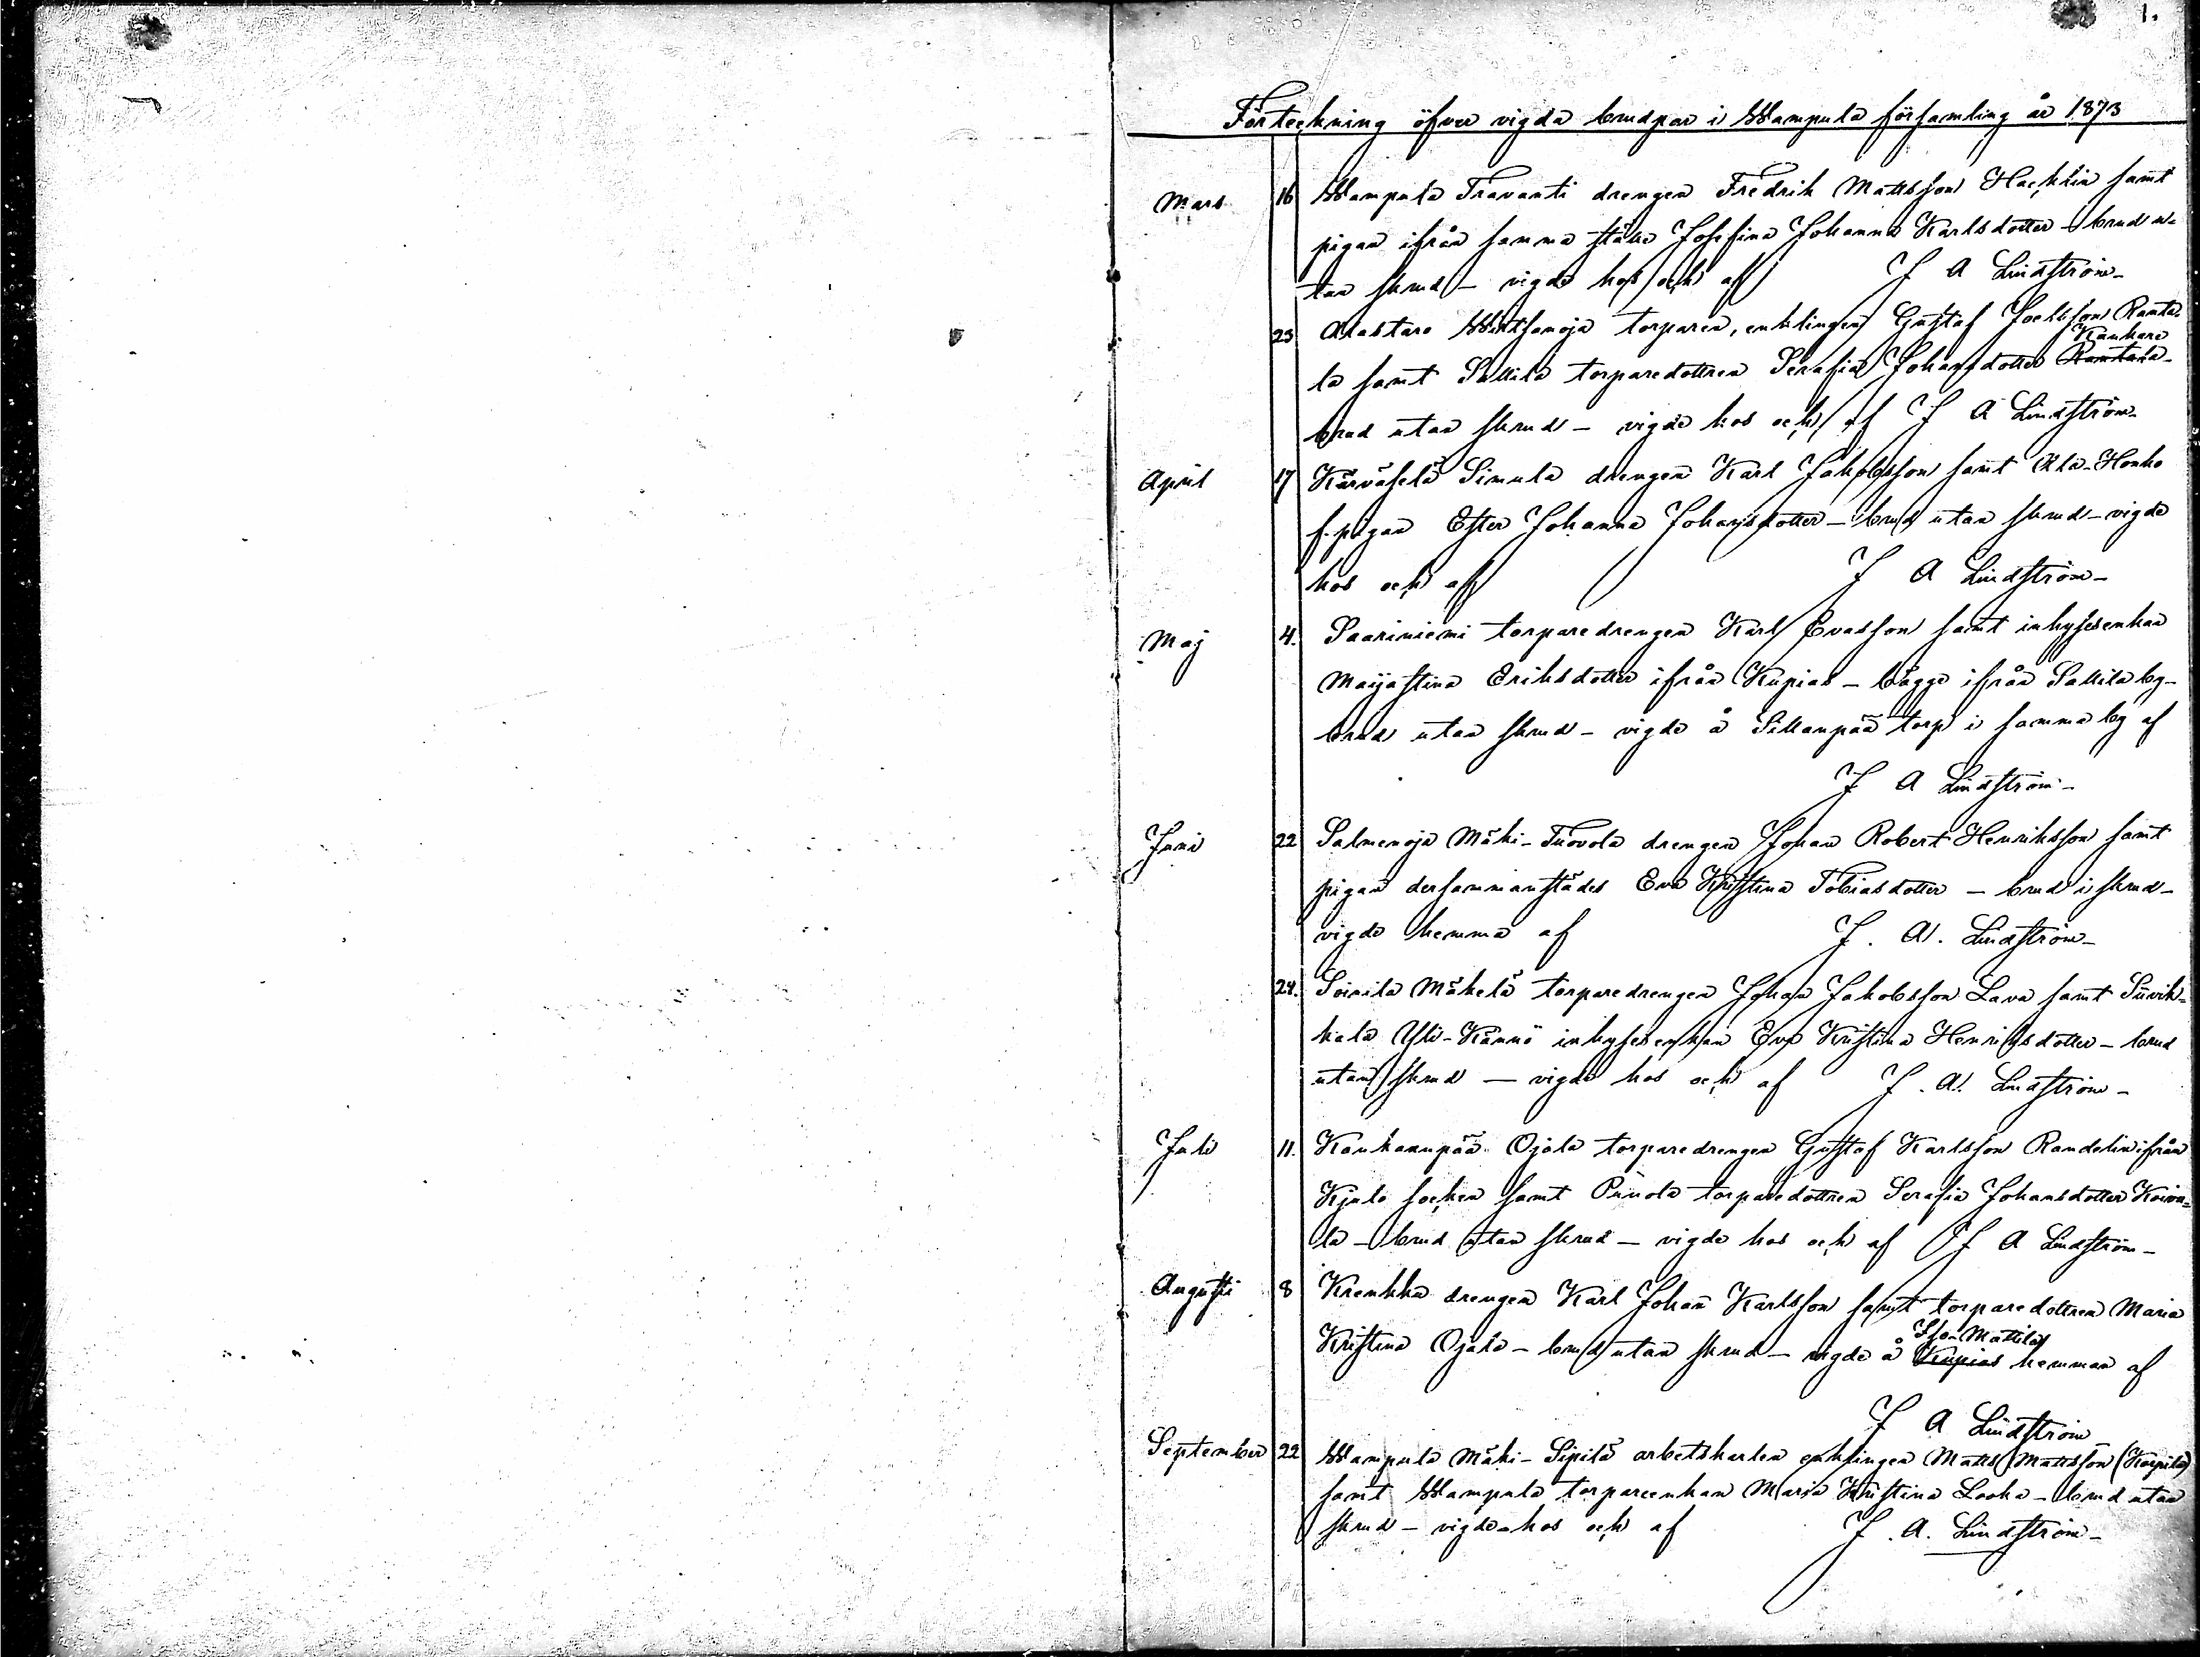 1.
Förteckning öfver vigda brudpar i Wampula församling år 1873
Mars 16 Wampula Travanti drengen Fredrik Mattsson Hacklin samt
pigan ifrån samma ställe Josefina Johanna Karlsdotter – brud u-
tan skrud – vigde hos och af J A Lindström –
23 Alastaro Wirtsanoja torparen, enklingen Gustaf Joelsson Ranta-
Kankare
la samt Sallila torparedottren Serafia Johansdotter Rantala –
brud utan skrud – vigde hos och af J A Lindström –
April 17 Kärväselä Simula drengen Karl Jakobsson samt Ala-Honko
f. pigan Ester Johanna Johansdotter – brud utan skrud – vigde
hos och af J A Lindström –
Maj 4. Saariniemi torparedrengen Karl Evasson samt inhysesenkan
Maijastina Eriksdotter ifrån Kupias – bägge ifrån Sallila by –
brud utan skrud – vigde å Sillanpää torp i samma by af
J A Lindström –
Juni 22 Salmenoja Mäki-Tuovola drengen Johan Robert Henriksson samt
pigan dersammanstädes Eva Kristina Tobiasdotter – brud i skrud –
vigde hemma af J. A. Lindström –
24. Soinila Mäkelä torparedrengen Johan Jakobsson Lava samt Suvik-
kala Yli-Kännö inhysesenkan Eva Kristina Henriksdotter – brud
utan skrud – vigde hos och af J. A. Lindström –
Juli 11. Kankaanpää Ojala torparedrengen Gustaf Karlsson Randelin ifrån
Kjulo socken samt Punola torparedottren Serafia Johansdotter Koivu-
la – brud utan skrud – vigde hos och af J A Lindström –
Augusti 8 Krenkka drengen Karl Johan Karlsson samt torparedottren Maria
Iso-Mattila
Kristina Ojala – brud utan skrud – vigde å Kupias hemman af
J A Lindström
September 22 Wampula Mäki-Sipilä arbetskarlen enklingen Matts Mattsson (Korpila)
samt Wampula torpareenkan Maria Kristina Looka – brud utan
skrud – vigde hos och af J. A. Lindström –